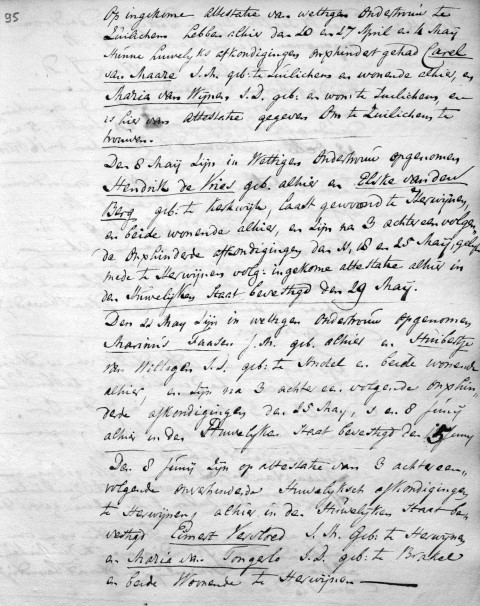 95
Op ingekome attestatie van wettigen Ondertrouw te
Zuilichem hebben alhier den 20 en 27 April en 4 Maij
hunne huwelijks afkondigingen onverhindert gehad Carel
van Maare J.M. geb: te Zuilichem en wonende alhier, en
Maria van Wijnen J.D. geb: en won: te Zuilichem, en
is hier van attestatie gegeven om te Zuilichem te
trouwen.
Den 8 Maij zijn in Wettigen Ondertrouw opgenomen
Hendrik de Vries geb. alhier en Elske van den
Berg geb: te Kerkwijk, laast gewoond te Herwijnen,
en beide wonende alhier, en zijn na 3 achter een volgen-
de onverhinderde afkondigingen den 11, 18 en 25 Maij, gelijk
mede te Herwijnen volg: ingekome attestatie alhier in
den Huwelijken Staat bevestigd den 29 Maij.
Den 21 Maij zijn in wettigen Ondertrouw opgenomen
Marinus Faasen J.M. geb. alhier en Huibertje
van Willigen J.D. geb: te Andel en beide wonende
alhier, en zijn na 3 achter een volgende onverhin-
derde afkondigingen den 25 Maij, 1 en 8 Junij
alhier in den Huwelijken Staat bevestigd den 15 Junij
Den 8 Junij zijn op attestatie van 3 achter een-
volgende onverhinderde Huwelijksch afkondigingen
te Herwijnen, alhier in den Huwelijken Staat be-
vestigd J.M. geb: te Herwijnen
en Maria van Tongelo J.D. geb: te Brakel
en beide Wonende te Herwijnen